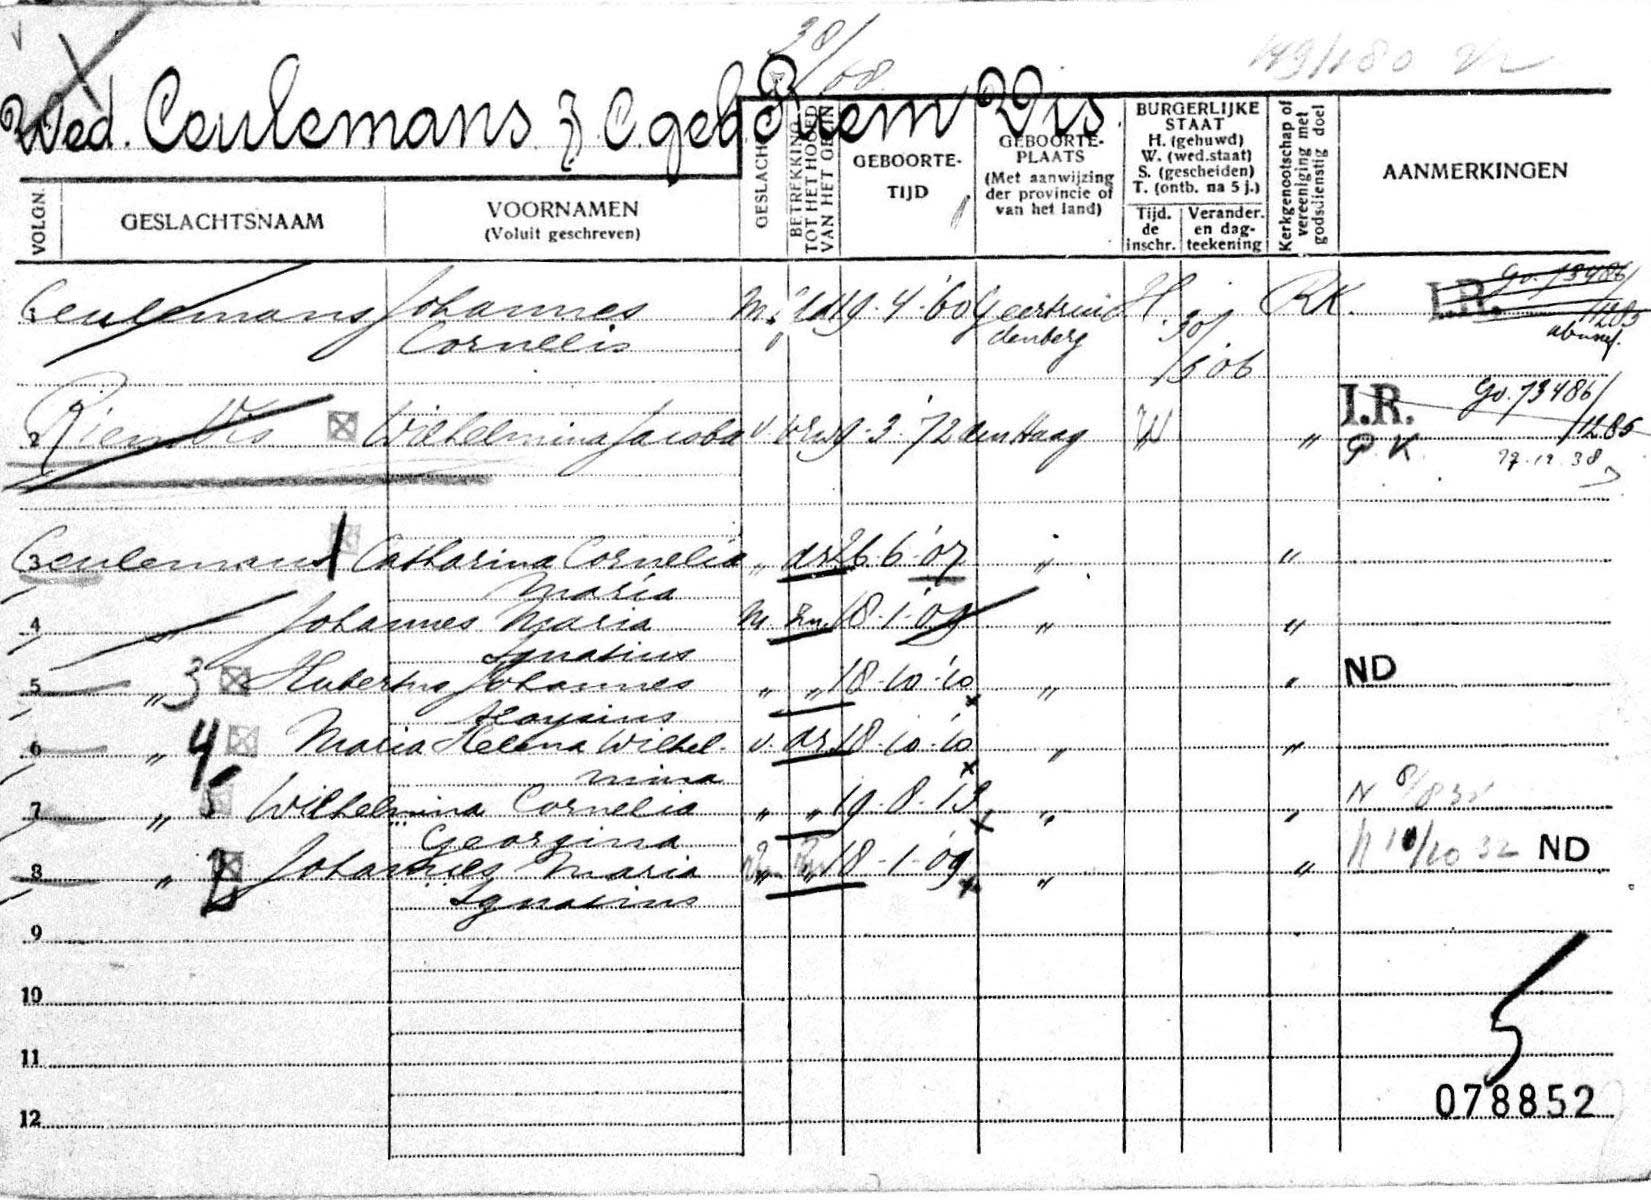 38/68
Wed. Ceulemans J. C. geb. Riem Vis
VOLGN.
GESLACHTSNAAM
VOORNAMEN
(Voluit geschreven)
GESLACHT
BETREKKING TOT HET HOOFD VAN HET GEZIN
GEBOORTE-
TIJD
GEBOORTE-
PLAATS
(Met aanwijzing
der provincie of
van het land)
BURGERLIJKE
STAAT
H. (gehuwd)
W. (wed.staat)
S. (gescheiden)
T. (ontb. na 5 j.)
Tijd.
de
inschr.
Verander.
en dag-
teekening
Kerkgenootschap of
vereeniging met
godsdienstig doel
AANMERKINGEN
1 Ceulemans Johannes M. 19.4.'60 Geertrui H. 30/ R.K. I.R. Go. 13486/
Cornelis denberg /5 06 1285
2 Riem Vis Wilhelmina Jacoba v vrw 9.3.'72 den Haag W " I.R. Go. 13486/
1285
P.K. 27.12.38
3 Ceulemans 1 Catharina Cornelia " dr 26.6.'07 " "
Maria
4 " Johannes Maria M zn 18.1.'09 " "
Ignatius
5 " 3 Hubertus Johannes " " 18.10.'10 " " ND
Aloysius
6 " 4 Maria Helena Wilhel- v. dr 18.10.'10 " "
mina
7 " 5 Wilhelmina Cornelia " " 19.8.'13 " " N 8/8 32
Georgina
8 " 2 Johannes Maria " " 18.1.'09 " " N 10/10 32 ND
Ignatius
9
10
11
5
12
078852